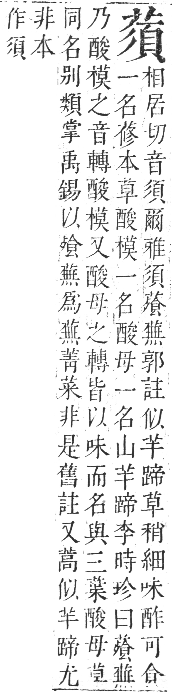 蕦
相居切音須爾雅須薞蕪郭註似羊蹄草稍細味酢可食
一名蓚本草酸模一名酸母一名山羊蹄李時珍曰薞蕪
乃酸模之音轉酸模又酸母之轉皆以味而名與三葉酸母草
同名别類掌禹錫以飱蕪爲蕪菁菜非是舊註又蒿似羊蹄尤
非本
作須